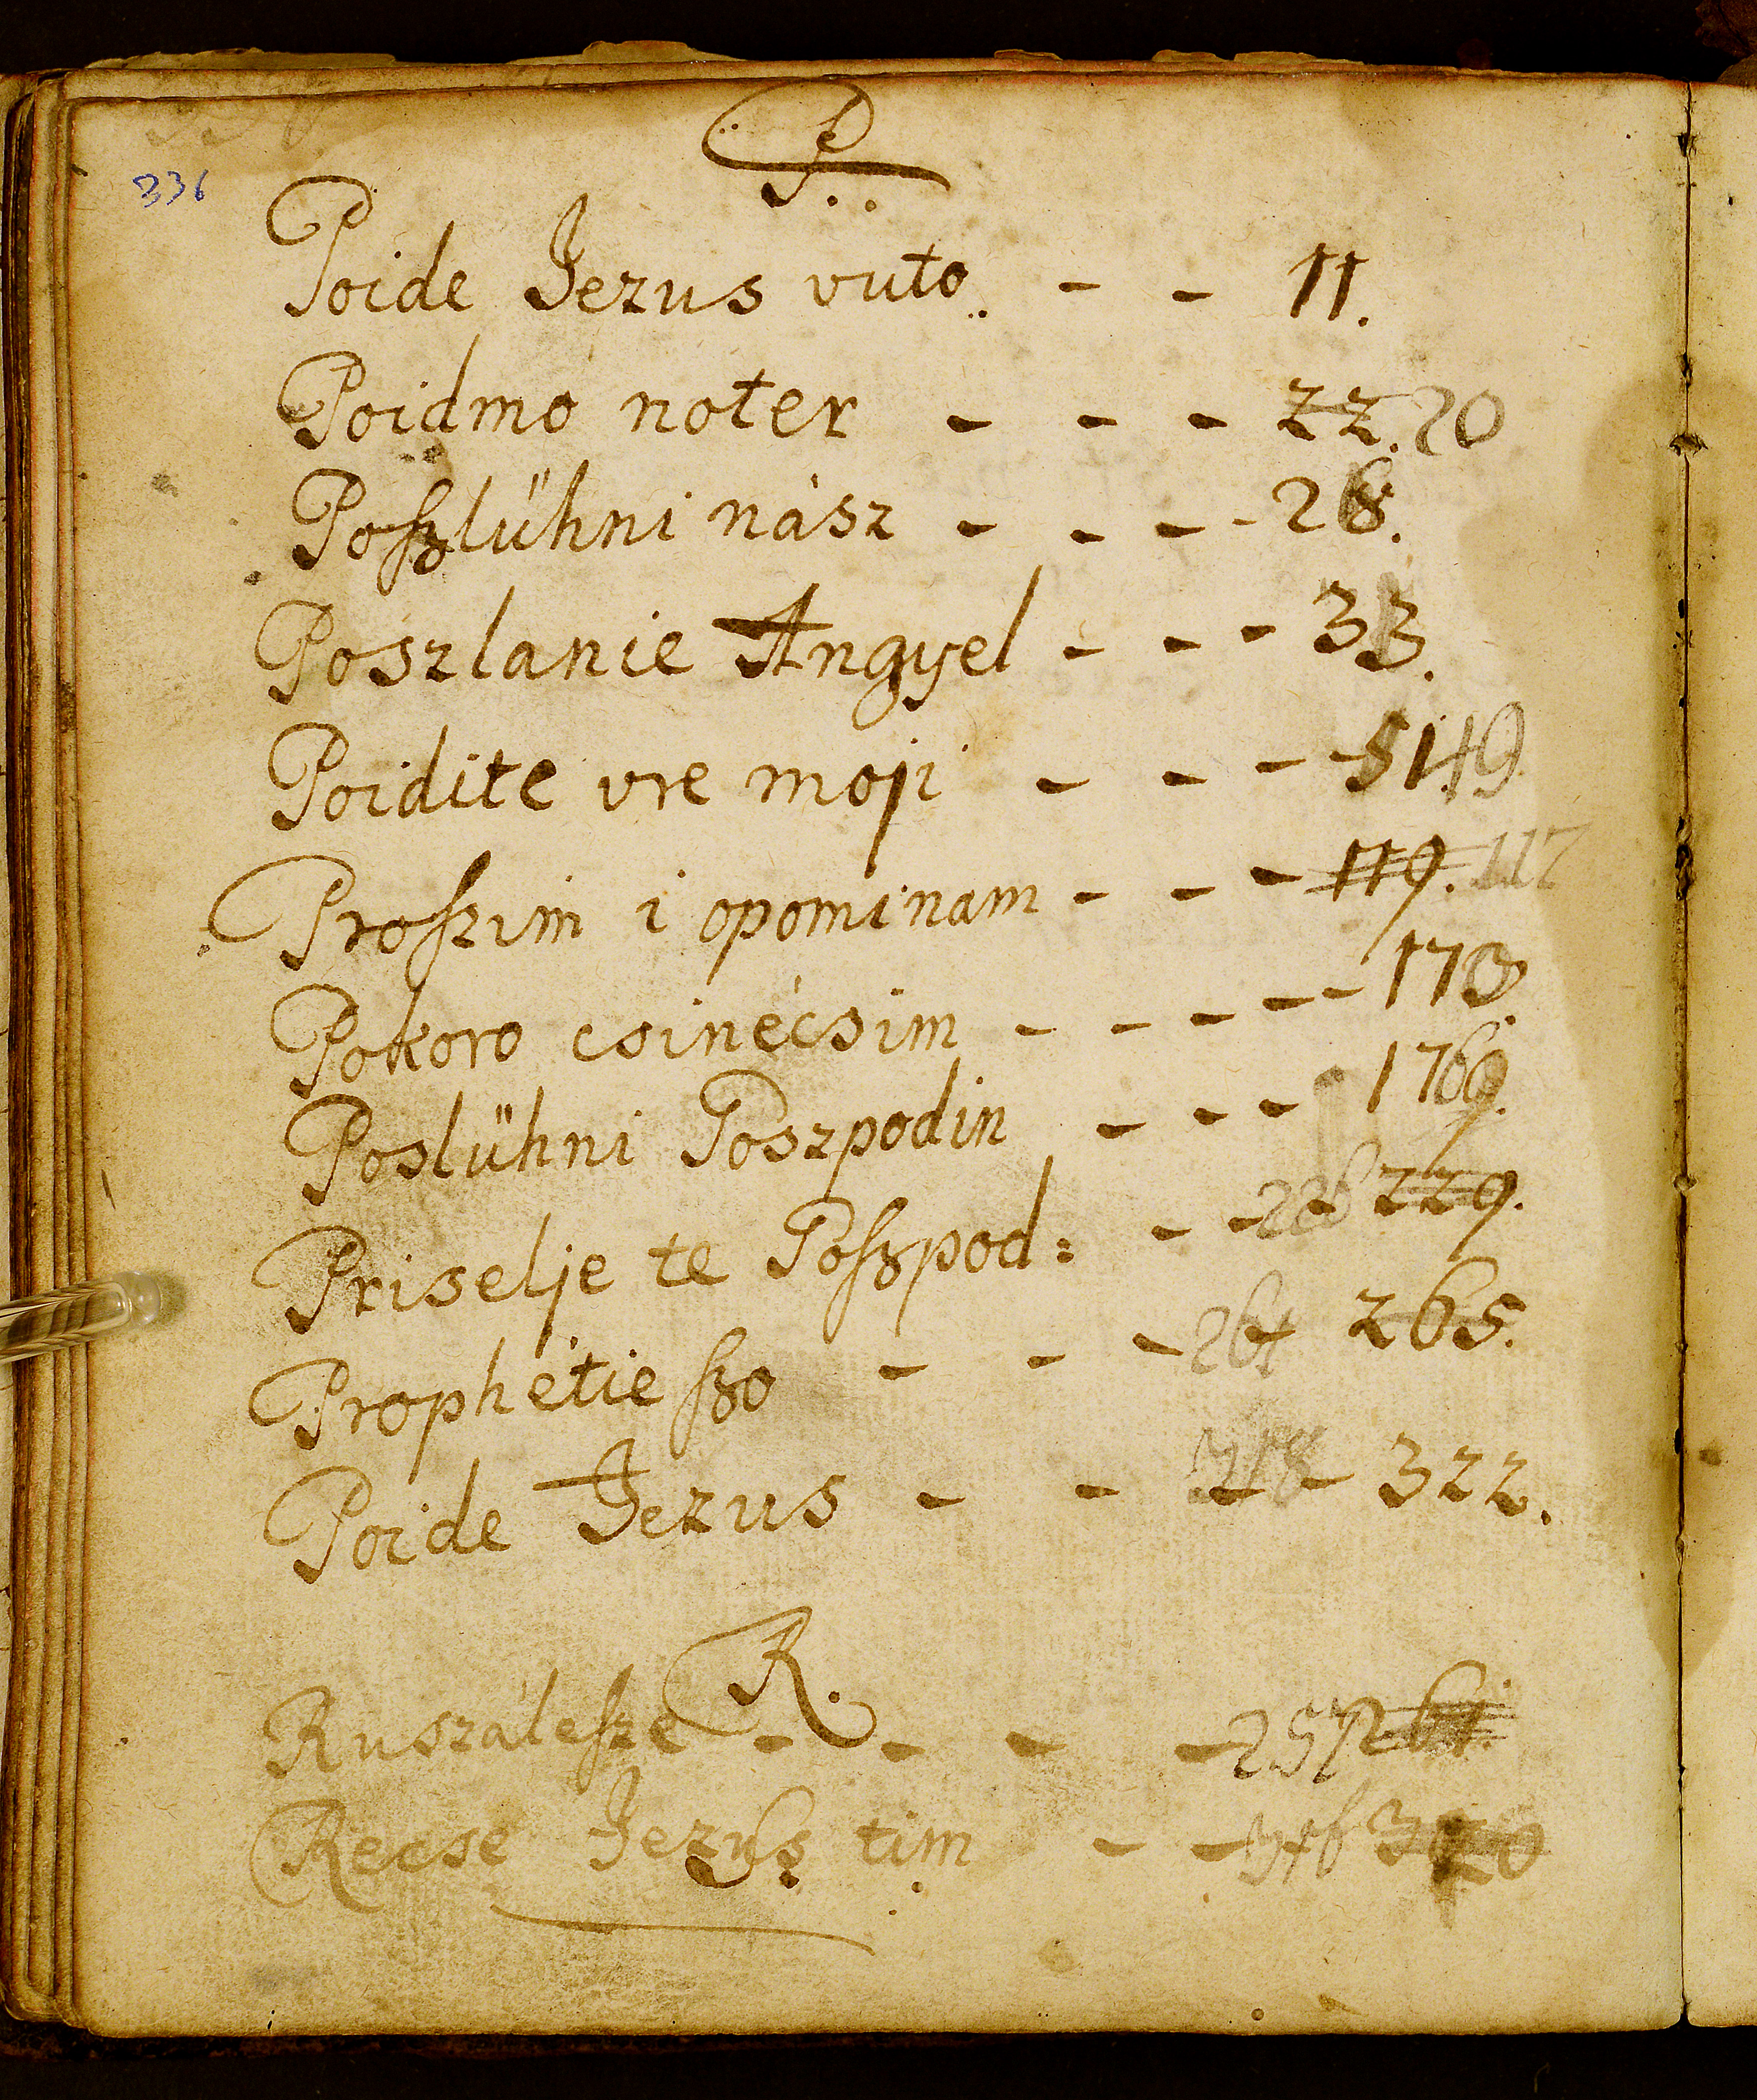 P.
336
Poide Jezus vuto. - - 11.
Poidmo noter - - - 22. 20
Poſzlühni nász - - - - 28.
Poszlanie Angyel - - - 33.
Poidite vre moji - - - - 51. 49
Proſzim i opominam - - - 119. 117
Pokoro csinécsim - - - - - 173.
Poslühni Goszpodin - - - 1769.
Priselje te Goſzpod: - - 226 229.
Prophétie ſzo - - - 264 265.
Poide Jezus - - 318 - 322.
R.
Ruszáleſze - - - - 257
Recse Jezus tim - -